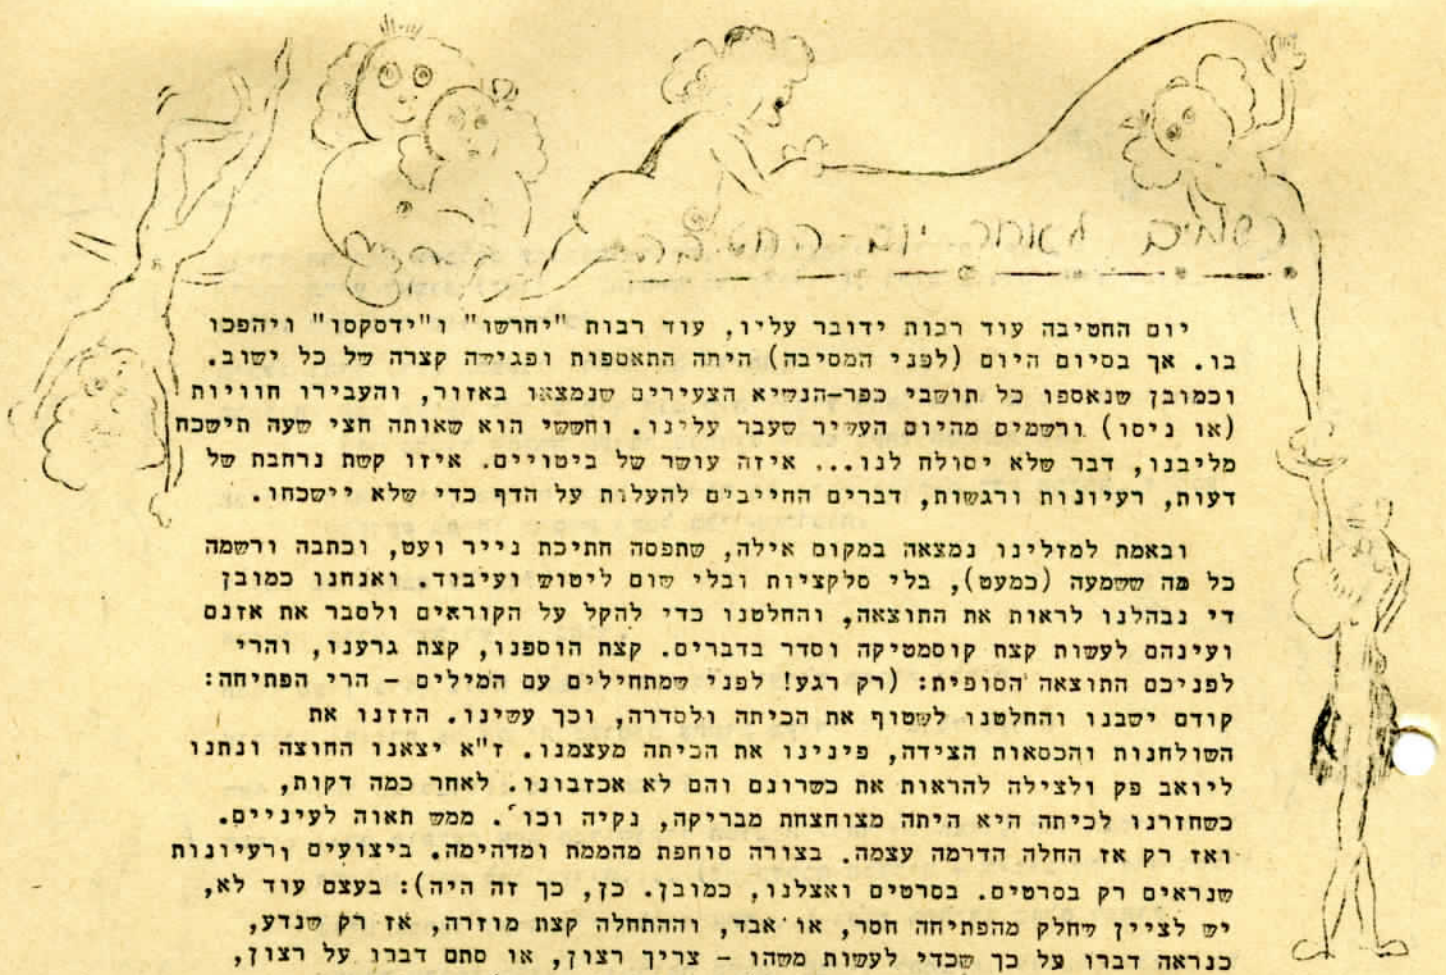 רשמים לאחר יום-החטיבה
יום החטיבה עוד רבות ידובר עליו, עוד רבות "יחרשו" ו"ידסקסו" ויהפכו
בו. אך בסיום היום (לפני המסיבה) היתה התאספות ופגישה קצרה של כל ישוב.
וכמובן שנאספו כל תושבי כפר-הנשיא הצעירים שנמצאו באזור, והעבירו חוויות
(או ניסו) ורשמים מהיום העשיר שעבר עלינו. וחששי הוא שאותה חצי שעה תישכח
מליבנו, דבר שלא יסולח לנו... איזה עושר של ביטויים. איזו קשת נרחבת של
דעות, רעיונות ורגשות, דברים החייבים להעלות על הדף כדי שלא יישכחו.
ובאמת למזלינו נמצאה במקום אילה, שתפסה חתיכת נייר ועט, וכתבה ורשמה
כל מה ששמעה (כמעט), בלי סלקציות ובלי שום ליטוש ועיבוד. ואנחנו כמובן
די נבהלנו לראות את התוצאה, והחלטנו כדי להקל על הקוראים ולסבר את אזנם
ועינהם לעשות קצת קוסמטיקה וסדר בדברים. קצת הוספנו, קצת גרענו, והרי
לפניכם התוצאה הסופית: (רק רגע! לפני שמתחילים עם המילים - הרי הפתיחה:
קודם ישבנו והחלטנו לשטוף את הכיתה ולסדרה, וכך עשינו. הזזנו את
השולחנות והכסאות הצידה, פינינו את הכיתה מעצמנו. ז"א יצאנו החוצה ונתנו
ליואב פק ולצילה להראות את כשרונם והם לא אכזבונו. לאחר כמה דקות,
כשחזרנו לכיתה היא היתה מצוחצחת מבריקה, נקיה וכו'. ממש תאוה לעיניים.
ואז רק אז החלה הדרמה עצמה. בצורה סוחפת מהממת ומדהימה. ביצועים ורעיונות
שנראים רק בסרטים. בסרטים ואצלנו, כמובן. כן, כך זה היה): בעצם עוד לא,
יש לציין שחלק מהפתיחה חסר, או אבד, וההתחלה קצת מוזרה, אז רק שנדע,
כנראה דברו על כך שכדי לעשות משהו - צריך רצון, או סתם דברו על רצון,